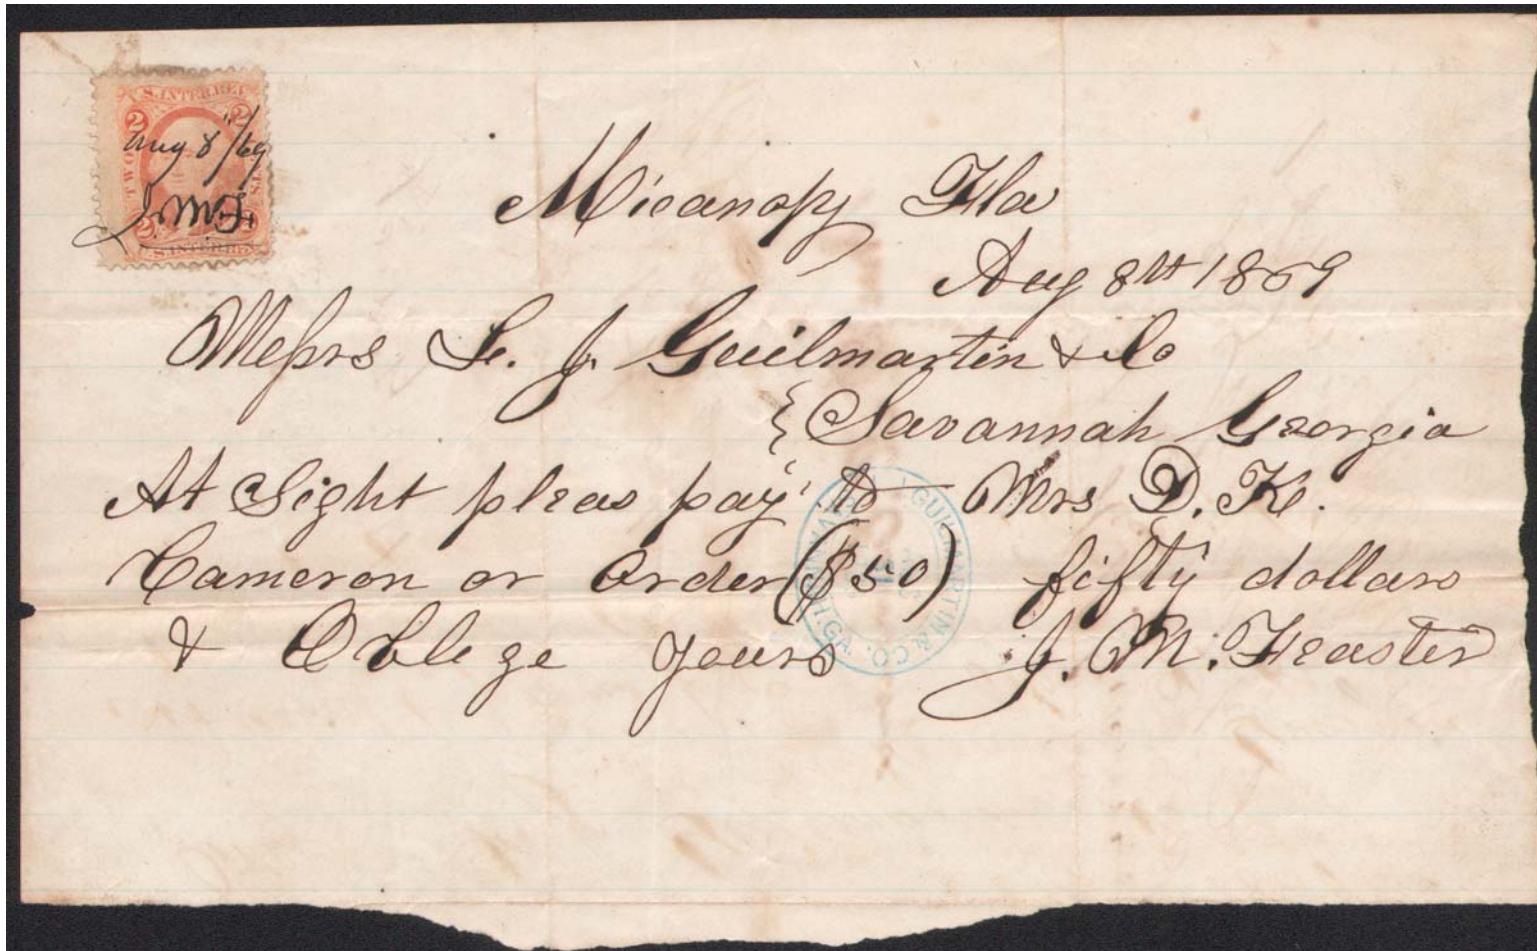 U.S. INTER. REV.
2 2
TWO CENTS
Aug 8th/69
J. M. F.
2 2
Micanopy Fla
Aug 8th 1869
Messrs L. J. Guilmartin & Co
Savannah Georgia
At Sight pleas pay to Mrs D. K.
Cameron or order ($50) fifty dollars
& Oblege yours J. M. Feaster
GUILMARTIN & CO.
SAVANNAH, GA.